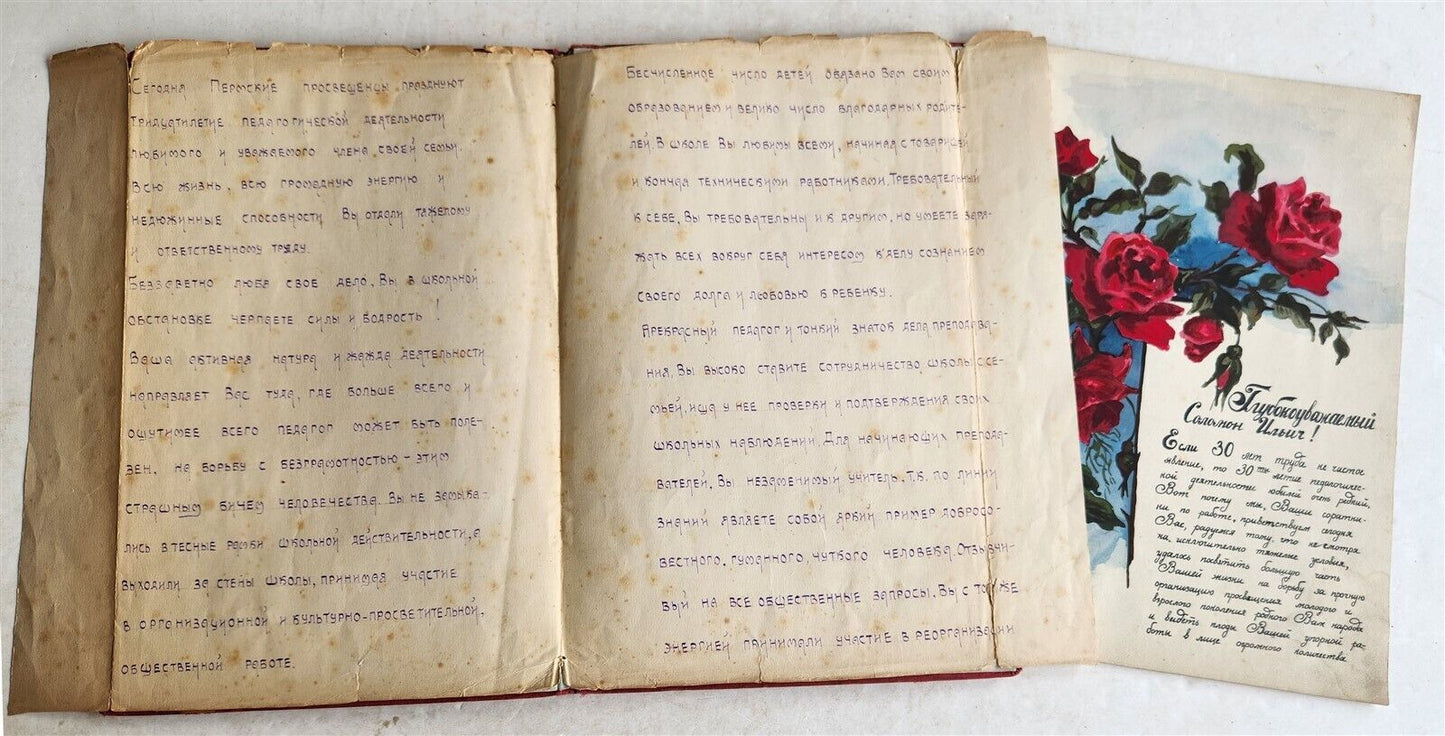 Сегодня Пермские просвещенцы празднуют
тридцатилетие педагогической деятельности
любимого и уважаемого члена своей семьи.
Всю жизнь, всю громадную энергию и
недюжинные способности Вы отдали тяжелому
и ответственному труду.
Беззаветно любя свое дело, Вы в школьной
обстановке черпаете силы и бодрость!
Ваша активная натура и жажда деятельности
направляет Вас туда, где больше всего и
ощутимее всего педагог может быть поле-
зен, на борьбу с безграмотностью - этим
страшным бичем человечества. Вы не замыка-
лись в тесные рамки школьной действительности, а
выходили за стены школы, принимая участие
в организационной и культурно-просветительной,
общественной работе.
Бесчисленное число детей обязано Вам своим
образованием и велико число благодарных родите-
лей. В школе Вы любимы всеми, начиная с товарищей
и кончая техническими работниками. Требовательный
к себе, Вы требовательны и к другим, но умеете заря-
жать всех вокруг себя интересом к делу сознанием
своего долга и любовью к ребенку.
Прекрасный педагог и тонкий знаток дела препадава-
ния, Вы высоко ставите сотрудничество школы с се-
мьей, ища у нее проверки и подтверждения своих
школьных наблюдений. Для начинающих препода-
вателей, Вы незаменимый учитель, т.к. по линии
знаний являете собой яркий пример добросо-
вестного, гуманного, чуткого человека. Отзывчи-
вый на все общественные запросы, Вы с той же
энергией принимали участие в реорганизации
Глубокоуважаемый
Соломон Ильич!
Если 30 лет труда не частое
явление, то 30ти летие педагогичес-
кой деятельности юбилей очень редкий.
Вот почему мы, Ваши соратни-
ки по работе, приветствуем сегодня
Вас, радуемся тому, что не смотря
на исключительно тяжелые условия,
удалось посвятить большую часть
Вашей жизни на борьбу за прочную
организацию просвещения молодого и
взрослого поколения родного Вам народа
и видеть плоды Вашей упорной ра-
боты в лице огромного количества